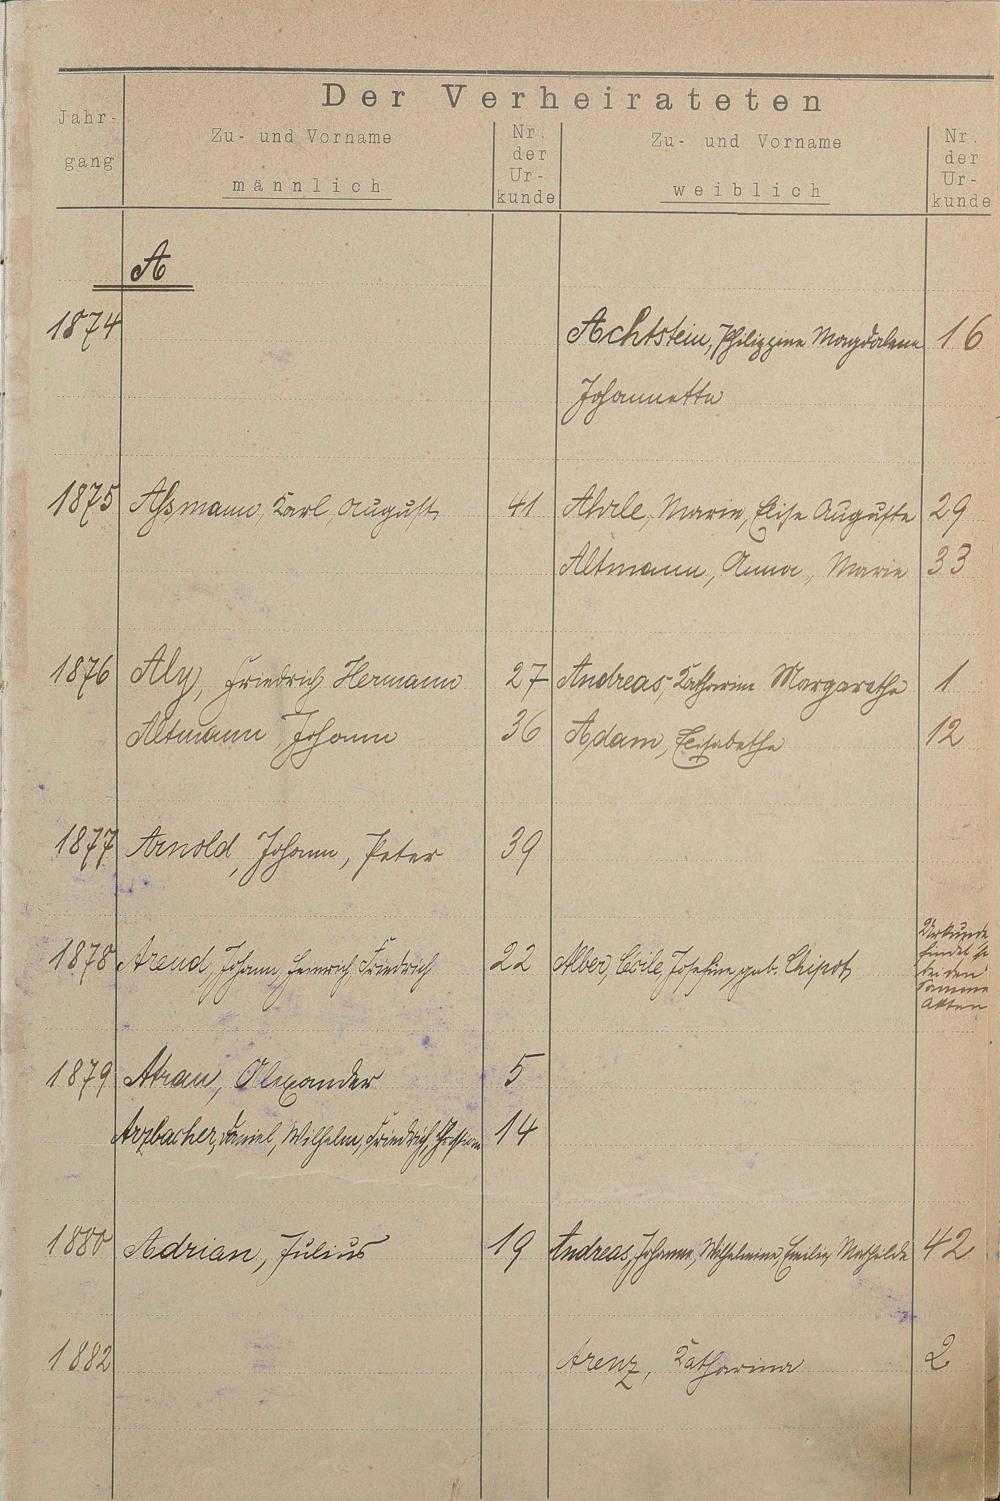 Der Verheirateten
Jahr-
gang
Zu- und Vorname
männlich
Nr.
der
Ur-
kunde
Zu- und Vorname
weiblich
Nr.
der
Ur-
kunde
A
1874 Achtstein, Philippine Magdalena 16
Johannetta
1875 Aßmann, Karl, August 41 Marie, Elise Auguste 29
Altmann, Anna, Marie 33
1876 Aly, Friedrich Hermann 27 Andreas, Katharine Margarethe 1
Altmann Johann 36 Adam, Elisabetha 12
1877 Arnold, Johann, Peter 39
1878 Arend, Johann, Heinrich Friedrich 22 Alber, Cécile, Josefine, geb. Chipot
Urkunde
findet sich
bei den
Samme
Akten
1879 Alexander 5
Arzbacher, Daniel, Wilhelm, Friedrich, Christian 14
1880 Adrian, Julius 19 Andreas, Johanna, Wilhelmine, Emilie, Mathilde 42
1882 Arenz, Katharina 2